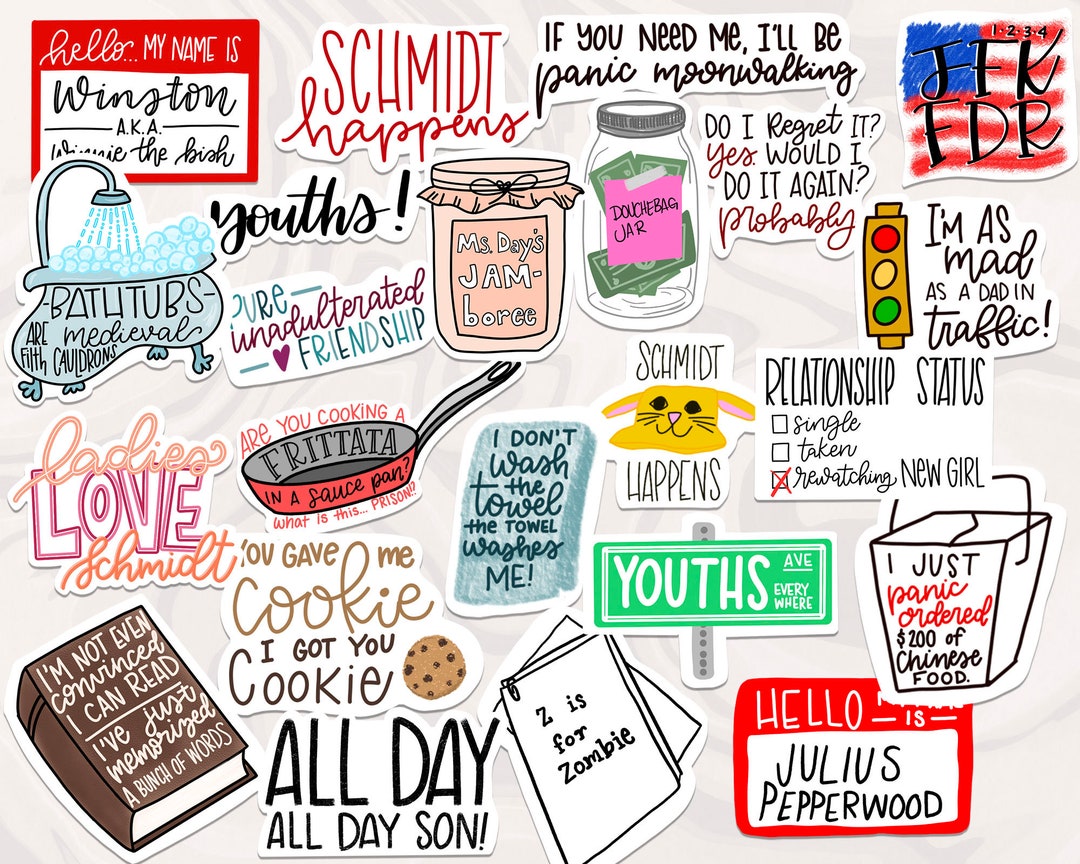 hello... MY NAME IS
Winston
A.K.A.
Winnie the bish
SCHMIDT
happens
IF YOU NEED ME, I'LL BE
panic moonwalking
1-2-3-4
JFK
FDR
youths!
Ms. Day's
JAM-
boree
DOUCHEBAG
JAR
DO I Regret IT?
Yes. WOULD I
DO IT AGAIN?
probably
BATHTUBS
ARE medieval
Filth CAULDRONS
PURE
unadulterated
FRIENDSHIP
I'M AS
mad
AS A DAD IN
traffic!
ARE YOU COOKING A
FRITTATA
IN A sauce pan?
What is this... PRISON!?
SCHMIDT
HAPPENS
RELATIONSHIP STATUS
single
taken
rewatching NEW GIRL
ladies
LOVE
Schmidt
I DON'T
Wash
the
towel
the TOWEL
washes
ME!
YOUTHS AVE
EVERY
WHERE
YOU GAVE me
Cookie
I GOT YOU
COOKIE
I JUST
panic
ordered
$200 of
Chinese
FOOD.
I'M NOT EVEN
convinced
I CAN READ
I've just
memorized
A BUNCH OF WORDS
Z is
for
Zombie
HELLO
IS
JULIUS
PEPPERWOOD
ALL DAY
ALL DAY SON!